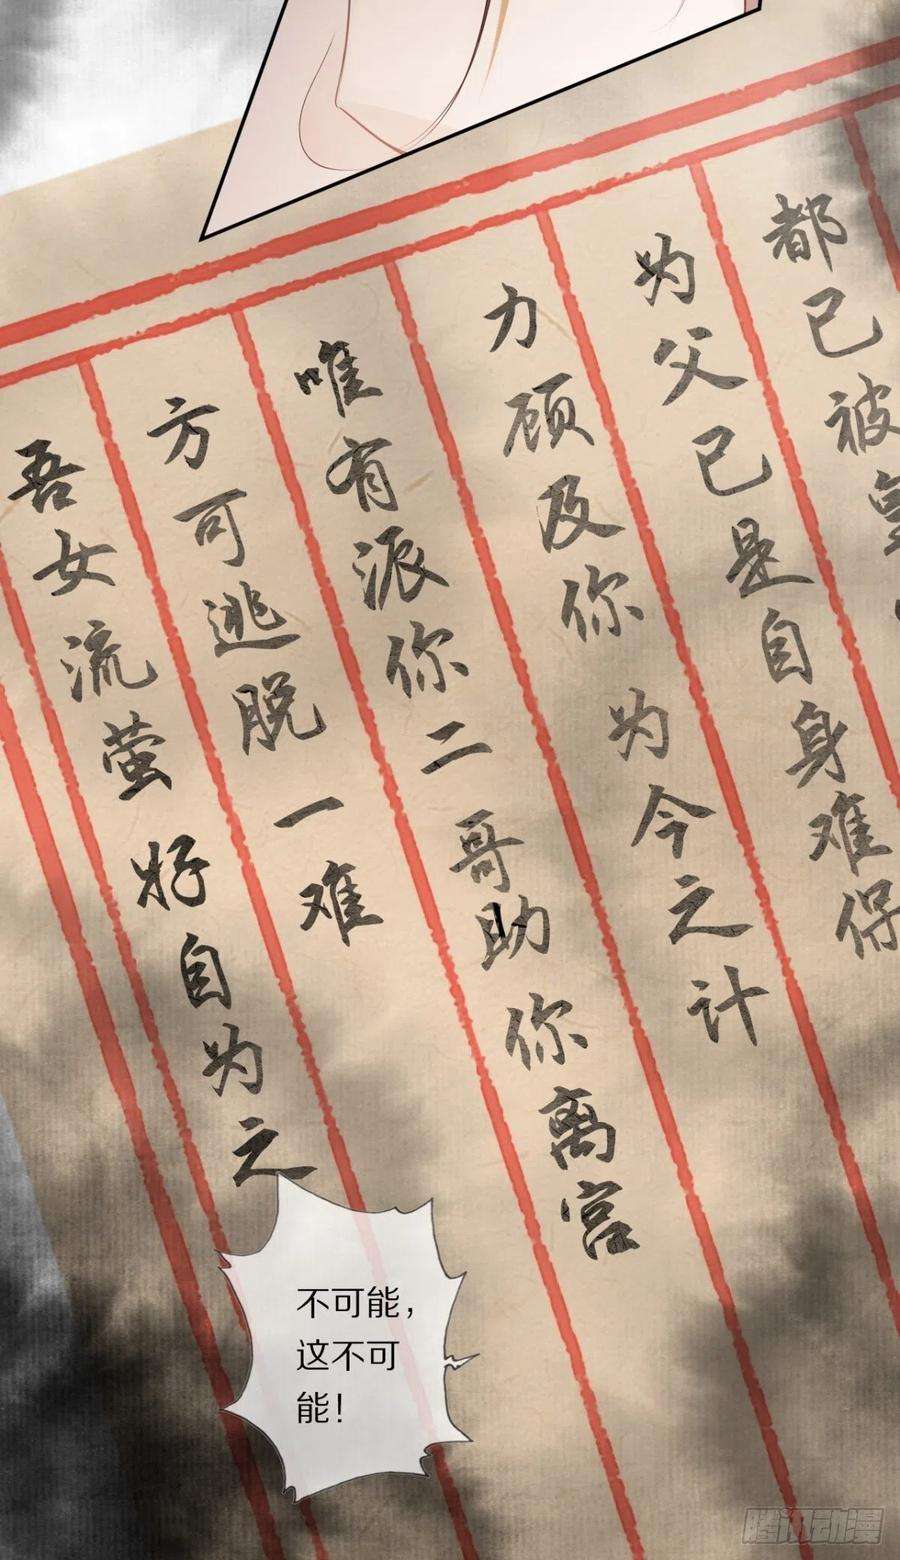 都已被皇
为父已是自身难保
力顾及你 为今之计
唯有派你二哥助你离宫
方可逃脱一难
吾女流萤 好自为之
不可能，
这不可
能！
腾讯动漫